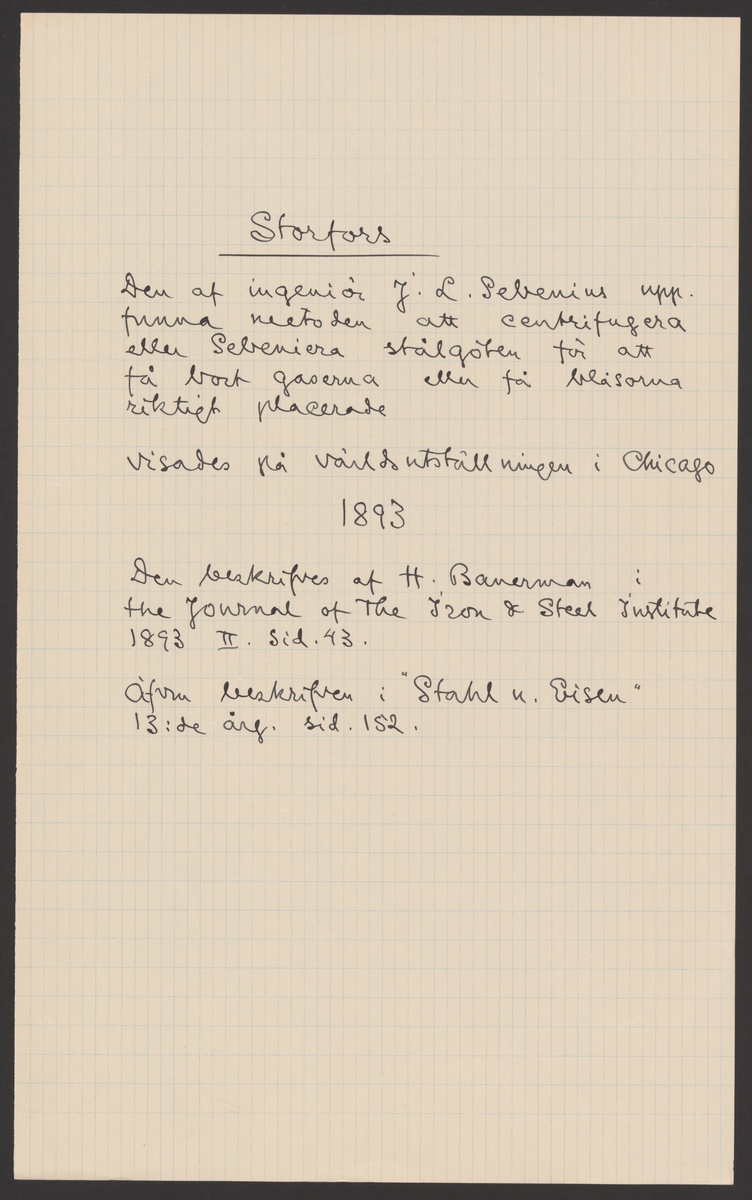 Storfors
Den af ingeniör J. L. Sebenius upp.
funna metoden att centrifugera
eller Sebeniera stålgöten för att
få bort gaserna eller få blåsorna
riktigt placerade
visades på världsutställningen i Chicago
1893
Den beskrifves af H. Bauerman i
the Journal of The Iron & Steel Institute
1893 II. Sid. 43.
Äfven beskrifven i "Stahl u. Eisen"
13:de årg. sid. 152.